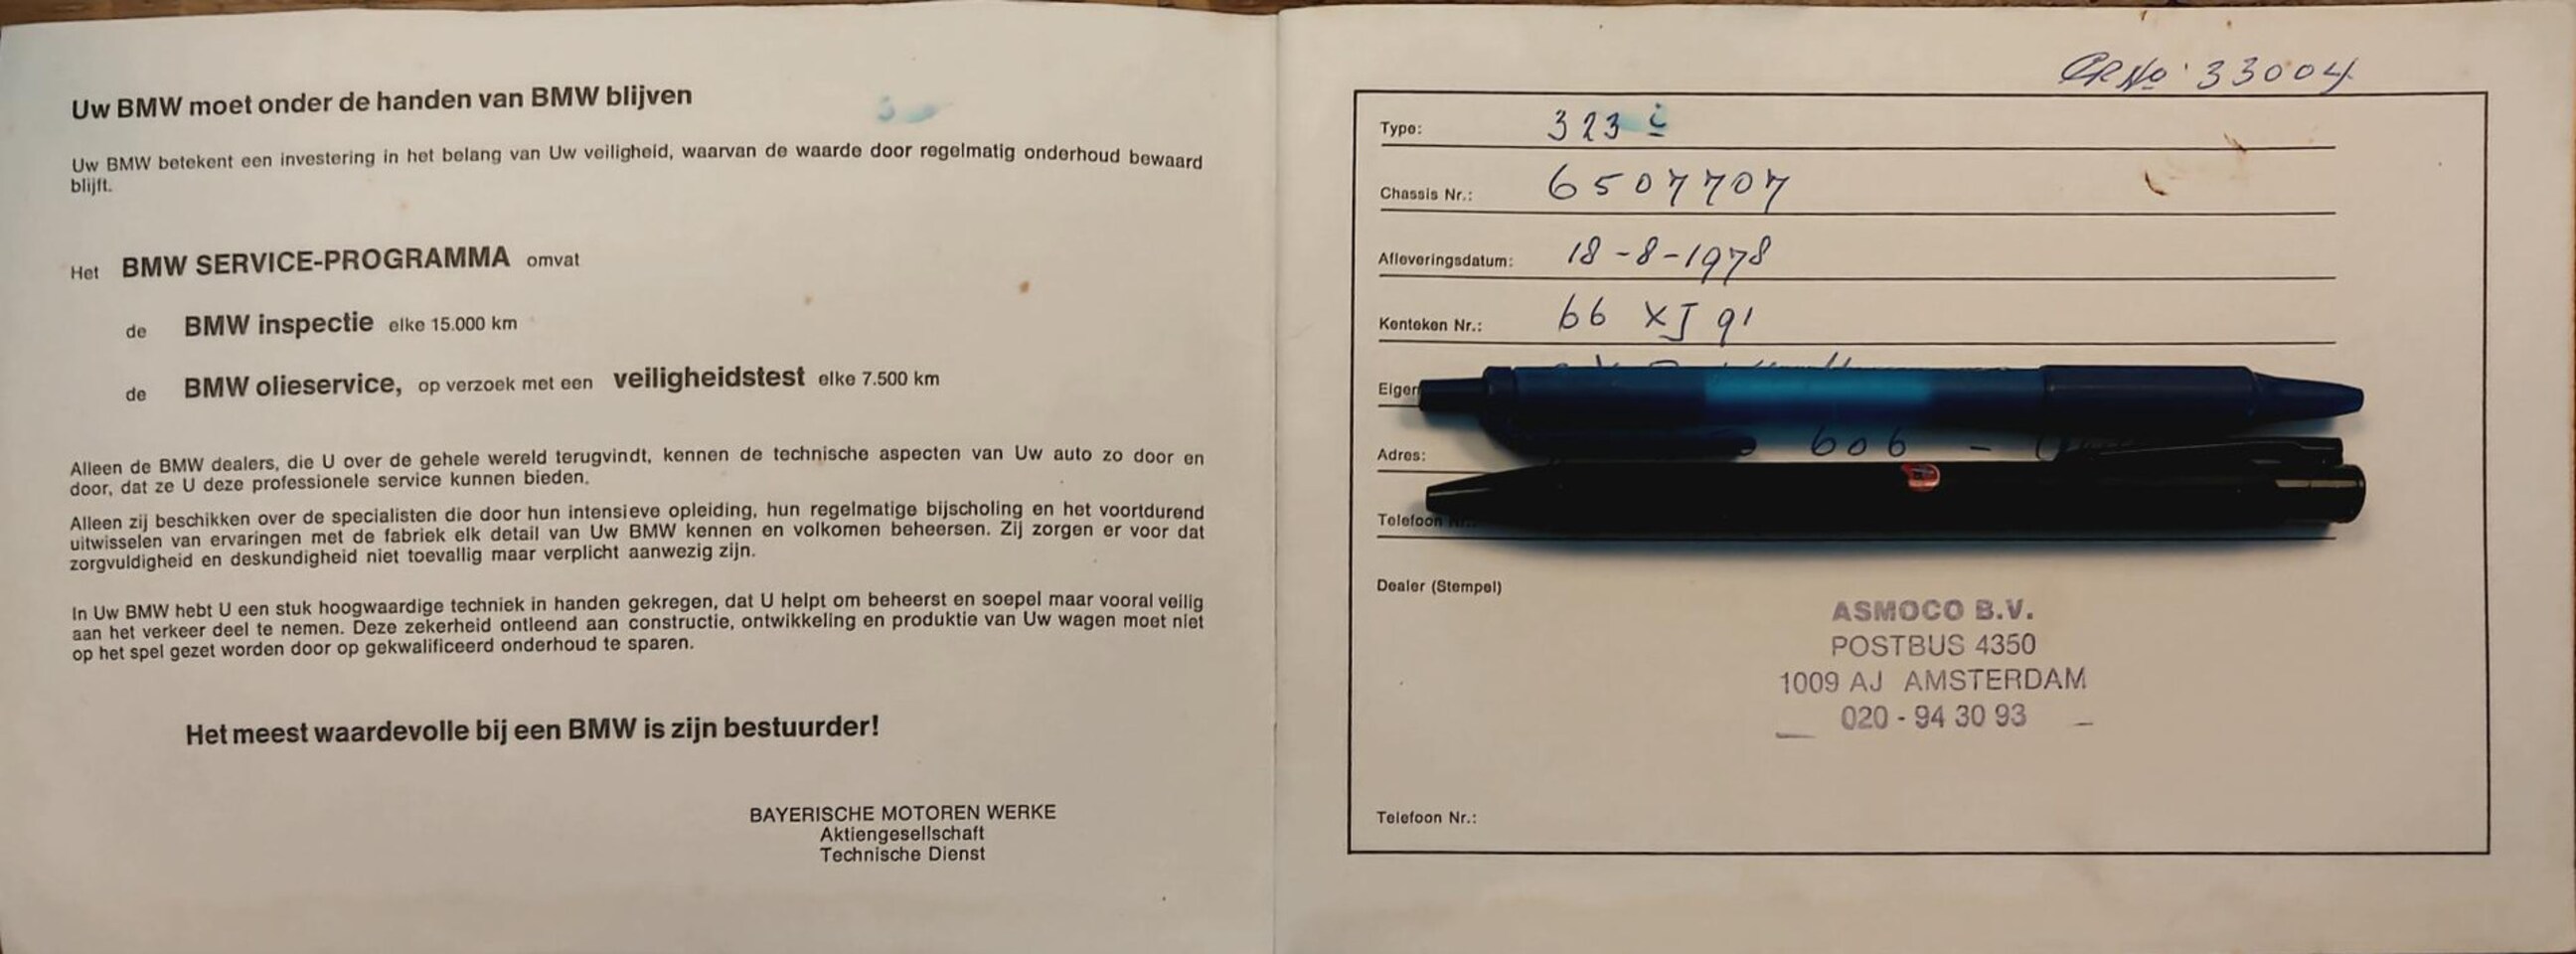 Uw BMW moet onder de handen van BMW blijven
Uw BMW betekent een investering in het belang van Uw veiligheid, waarvan de waarde door regelmatig onderhoud bewaard
blijft.
Het BMW SERVICE-PROGRAMMA omvat
de BMW inspectie elke 15.000 km
de BMW olieservice, op verzoek met een veiligheidstest elke 7.500 km
Alleen de BMW dealers, die U over de gehele wereld terugvindt, kennen de technische aspecten van Uw auto zo door en
door, dat ze U deze professionele service kunnen bieden.
Alleen zij beschikken over de specialisten die door hun intensieve opleiding, hun regelmatige bijscholing en het voortdurend
uitwisselen van ervaringen met de fabriek elk detail van Uw BMW kennen en volkomen beheersen. Zij zorgen er voor dat
zorgvuldigheid en deskundigheid niet toevallig maar verplicht aanwezig zijn.
In Uw BMW hebt U een stuk hoogwaardige techniek in handen gekregen, dat U helpt om beheerst en soepel maar vooral veilig
aan het verkeer deel te nemen. Deze zekerheid ontleend aan constructie, ontwikkeling en produktie van Uw wagen moet niet
op het spel gezet worden door op gekwalificeerd onderhoud te sparen.
Het meest waardevolle bij een BMW is zijn bestuurder!
BAYERISCHE MOTOREN WERKE
Aktiengesellschaft
Technische Dienst
33004
Type: 323 i
Chassis Nr.: 6507707
Afleveringsdatum: 18-8-1978
Kenteken Nr.: 66 XJ 91
Eiger
Adres: 606 -
Telefoon
Dealer (Stempel)
ASMOCO B.V.
POSTBUS 4350
1009 AJ AMSTERDAM
020 - 94 30 93
Telefoon Nr.: